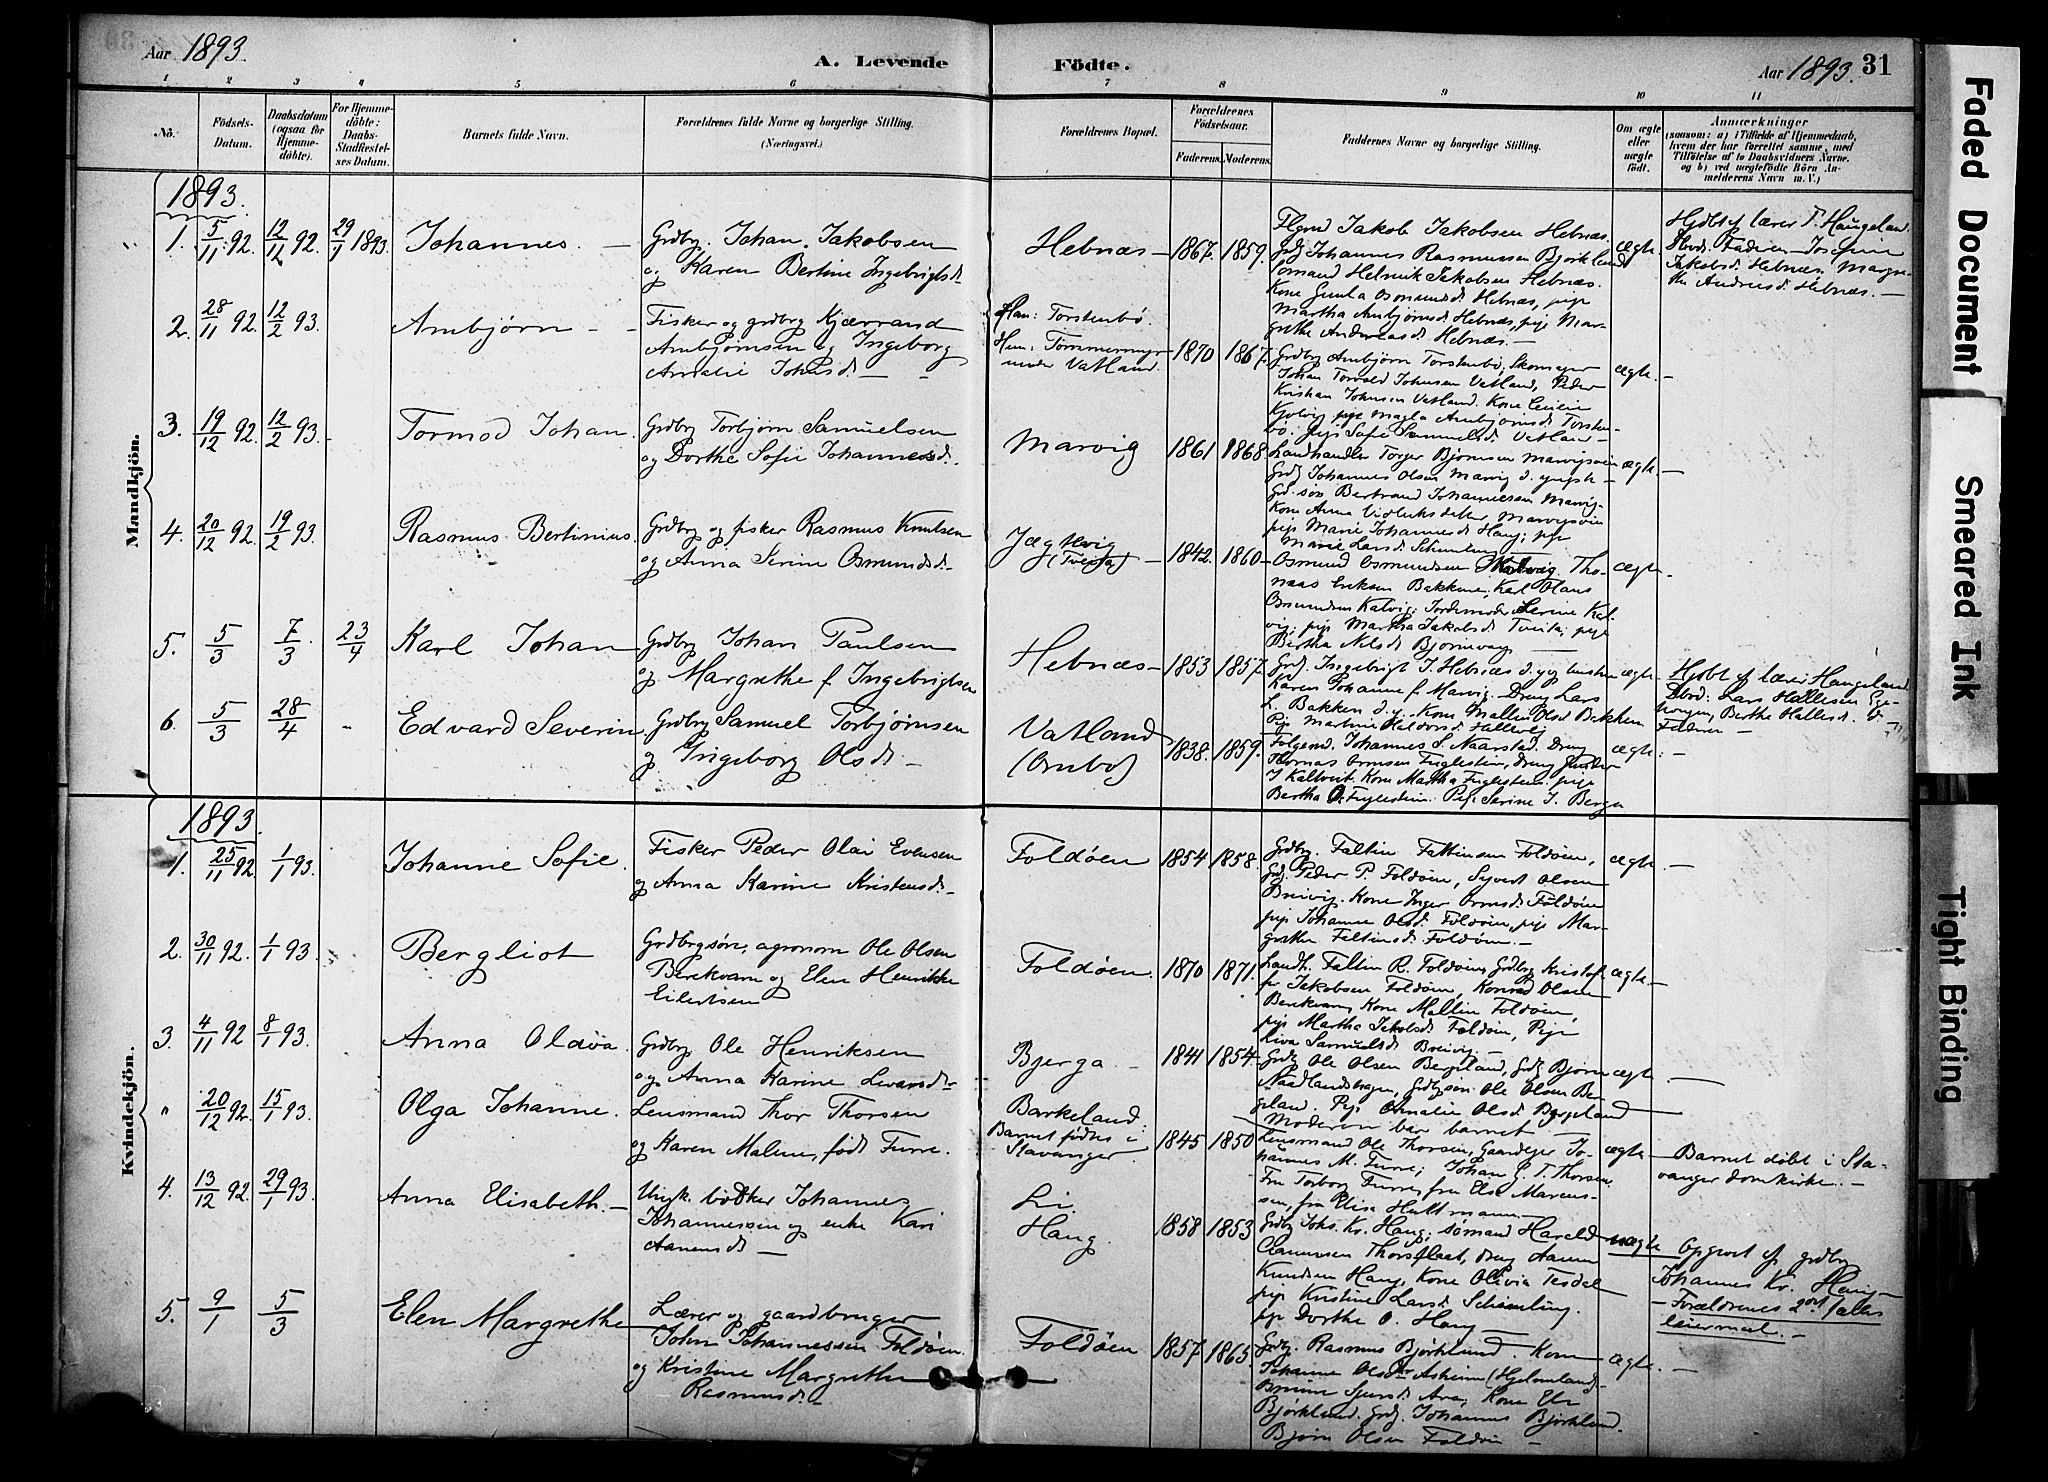 Aar 1893.
A. Levende
Födte.
Aar 1893.
31
1 2 3 4 5 6 7 8 9 10 11
No.
Födsels-
Datum.
Daabsdatum
(ogsaa för
Hjemme-
döbte).
For Hjemme-
döbte:
Daabs-
Stadfæstel-
ses Datum.
Barnets fulde Navn.
Forældrenes fulde Navne og borgerlige Stilling.
(Næringsvei.)
Forældrenes Bopæl.
Forældrenes
Födselsaar.
Faderens. Moderens.
Faddernes Navne og borgerlige Stilling.
Om ægte
eller
uægte
födt.
Anmærkninger
(saasom: a) i Tilfælde af Hjemmedaab,
hvem der har forrettet samme, med
Tilföielse af to Daabsvidners Navne,
og b) ved uægtefödte Börn An-
melderens Navn m. V.)
Mandkjön.
1893.
1. 5/11 92. 12/12 92. 29/1 1893. Johannes. —
Grdbr. Johan Jakobsen
og Karen Bertine Ingebrigtsd.
Hebnæs — 1867. 1859.
Flgmd Jakob Jakobsen Hebnæs.
Grdj Johannes Rasmussen Bjørklund
Sømand Helmik Jakobsen Hebnæs.
Kone Gunla Osmundsd. Hebnæs, pige
Martha Ambjørnsd. Hebnæs, pige Mar-
grethe Andreasd. Hebnæs. —
ægte.
Hjdbt af lærer T. Haugeland.
Faderen — Josefine
Jakobsd. Hebnæs, Margre-
the Andreasd. Hebnæs. —
2. 28/11 92. 12/2 93. Ambjørn — —
Fisker og grdbrg Kjærrand
Ambjørnsen og Ingeborg
Amalie Johnsd. —
Han: Torstenbø.
Hun: Tømmermyr
under Vatland.
1870 1867.
Grdbrg Ambjørn Torstenbø, Skomager
Johan Torvald Johnsen Vatland, Peder
Kristian Johnsen Vatland. Kone Cecilie
Kjølvig, pige Magla Ambjørnsd. Torsten-
bø. pige Sofie Samuelsd. Vatland —
ægte. —
3. 19/12 92. 12/2 93. - Tormod Johan.
Grdbr Torbjørn Samuelsen
og Dorthe Sofie Johannesd.
Marvig 1861 1868
Landhandler Torger Bjørnsen Marvigsven
Grdj Johannes Olsen Marvig d. yngste —
Grd.søn Bertrand Johannesen Marvig.
Kone Anna Marvigsven
pige Marie Johannesd. Haug; pige
Marie Larsd. Schimling —
ægte. —
4. 20/12 92. 19/2 93. Rasmus Bertinius.
Grdbrg og fisker Rasmus Knutsen
og Anna Serine Osmundsd. —
Jægtevig
(Tveita) — 1842. 1860 —
Osmund Osmundsen Kalvig Tho-
mas Eriksen Bakkene, Karl Olaus
Osmundsen Kalvig; Jordemoder Serine Kal-
vig; pige Martha Jakobsd. Tveita; pige
Bertha Nilsd. Bjørnevaag —
ægte.
5. 5/3 7/3. 23/4 Karl Johan
Grdbrg Johan Paulsen
og Margrethe f. Ingebrigtsen
Hebnæs — 1853 1857.
Grdj. Ingebrigt J. Hebnæs d.y og hustru
Karen Johanne f. Marvig. Dreng Lars
L. Bakken d.y. Kone Mallin Olsd Bakken
Pige Martine Haldorsd. Hallvig
ægte —
Hjdbt af lærer Haugeland
Lars Hallesen
Berthe Hallesd. &
Faderen —
6. 5/3 28/4 - Edvard Severin
Grdbrg Samuel Torbjørnsen
og Ingeborg Olsd. —
Vatland
(Ombo) 1838. 1859.
Folgemd. Johannes S. Naarstad. Dreng
Thomas Ormsen Fuglestein, dreng
J Kaltveit. Kone Martha Fuglestein. pige
Bertha O. Fuglestein. Pige Serine J. Berga
ægte. —
Kvindekjön.
1893.
1. 25/11 92 1/1 93. Johanne Sofie.
Fisker Peder Olai Evensen
og Anna Karine Kristensd. —
Foldøen 1854 1858.
Grdbrg. Faltin Faltinsen Foldøen,
Grdj. Peder P. Foldøen, Syvert Olsen
Breivig. Kone Inger Ormsd. Foldøen
pige Johanne Olsd. Foldøen, pige Mar-
grethe Feltinsd. Foldøen. —
ægte. —
2. 30/11 92. 1/1 93. Bergliot
Grdbrgsøn, agronom Ole Olsen
Berekvam og Elen Henrikke
Eilertsen
Foldøen. 1870 1871.
Landh. Faltin R. Foldøen, Grdbrg Kristof-
fer Jakobsen Foldøen, Konrad Olsen
Berekvam, Kone Mallin Foldøen,
pige Martha Jakobsd. Foldøen, Pige
Siva Samuelsd Breivig —
ægte. —
3. 4/11 92 8/1 93. Anna Oldva.
Grdbrg Ole Henriksen
og Anna Karine Sivarsd. —
Bjerga. — 1841 1854 —
Grdj Ole Olsen Bergeland, Grdj Bjørn
Naadlandshagen, Grdbrgsøn Ole Olsen Ber-
geland. Pige Amalie Olsd. Bergeland —
Moderen bar barnet —
ægte. —
" 20/12 92. 15/1 93. Olga Johanne.
Lensmand Thor Thorsen
og Karen Malene, født Furre.
Barkeland.
Barnet fødtes i
Stavanger.
1845 1850
Lensmand Ole Thorsen, Gaardejer Jo-
hannes M. Furre; Johan C. T. Thorsen
Fru Torborg Furre, frøk Else Marcus-
sen, frø Elise Hultmann —
ægte —
Barnet døbt i Sta-
vanger domkirke. —
4. 13/12 92. 29/1 93. Anna Elisabeth. —
Ungk. bødker Johannes
Johannessen og enke Kari
Aanensd. —
Li.
Haug. 1858 1853
Grdbrg Johs. Kr. Haug; sømand Harald
Aamundsen Thorsflaat, dreng Aanen
Knudsen Haug, Kone Olivia Tesdal
pige Kristine Larsd. Schimling.
pige Dorthe O. Haug —
uægte
Opgivet af grdbrg
Johannes Kr. Haug —
— Forældrenes 2det falles
leiermaal. —
5. 9/1 5/3 Elen Margrethe
Lærer og gaardbruger
John Johannessen Foldøen.
og Kristine Margrethe
Rasmusd. —
Foldøen 1857. 1865.
Grdj. Rasmus Bjørklund. Kone
Johanne Olsd. Asheim (Hjelmeland).
Kone Eli
Bjørklund. Grdj. Johannes Bjørklund.
Bjørn Olsen Foldøen —
ægte. —
Faded Document
Smeared Ink
Tight Binding